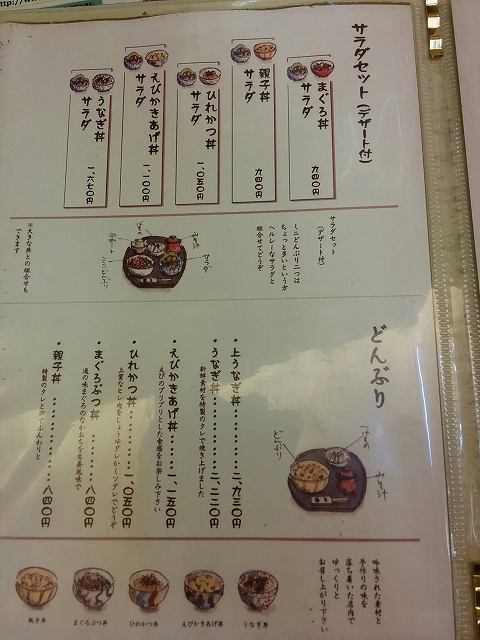 サラダセット(デザート付)
まぐろ丼
サラダ
九四〇円
親子丼
サラダ
九四〇円
ひれかつ丼
サラダ
一、〇五〇円
えびかきあげ丼
サラダ
一、一〇〇円
うなぎ丼
サラダ
一、六七〇円
サラダセット
(デザート付)
ミニどんぶり二つは
ちょっと多いという方
ヘルシーなサラダと
組合せでどうぞ
みそ汁
サラダ
デザート
ミニどんぶり
※大きな丼との組合せも
できます
どんぶり
・上うなぎ丼………二、九三〇円
・うなぎ丼………二、二二〇円
新鮮素材を特製のタレで焼き上げました
・えびかきあげ丼……一、一五〇円
えびのプリプリとした食感をお楽しみ下さい
・ひれかつ丼………一、〇五〇円
上質なヒレ肉をしょうゆダレかミソダレでどうぞ
・まぐろぶつ丼………八四〇円
通の味まぐろのなかおちを生姜風味で
・親子丼………八四〇円
特製のタレと卵でふんわりと
みそ汁
どんぶり
吟味された素材と
手作りの味を
落ち着いた店内で
ゆっくりと
お召し上がり下さい
うなぎ丼
えびかきあげ丼
ひれかつ丼
まぐろぶつ丼
親子丼